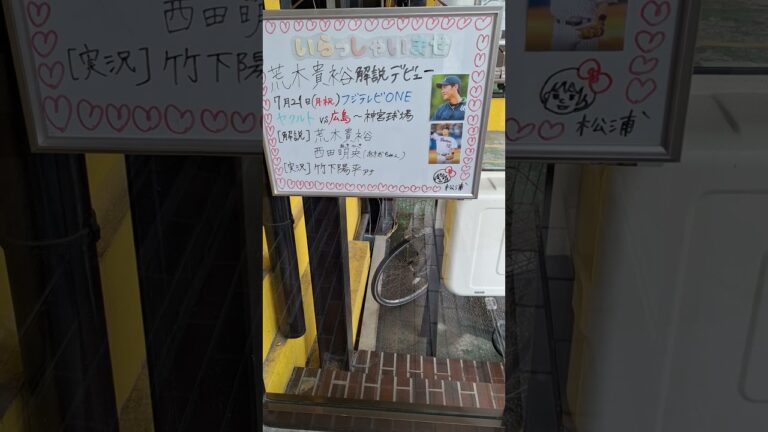 いらっしゃいませ
荒木貴裕解説デビュー
7月21日(月祝)フジテレビONE
ヤクルトvs広島〜神宮球場
[解説]荒木貴裕
西田明央
[実況]竹下陽平アナ
松浦
西田
[実況]竹下陽
松浦